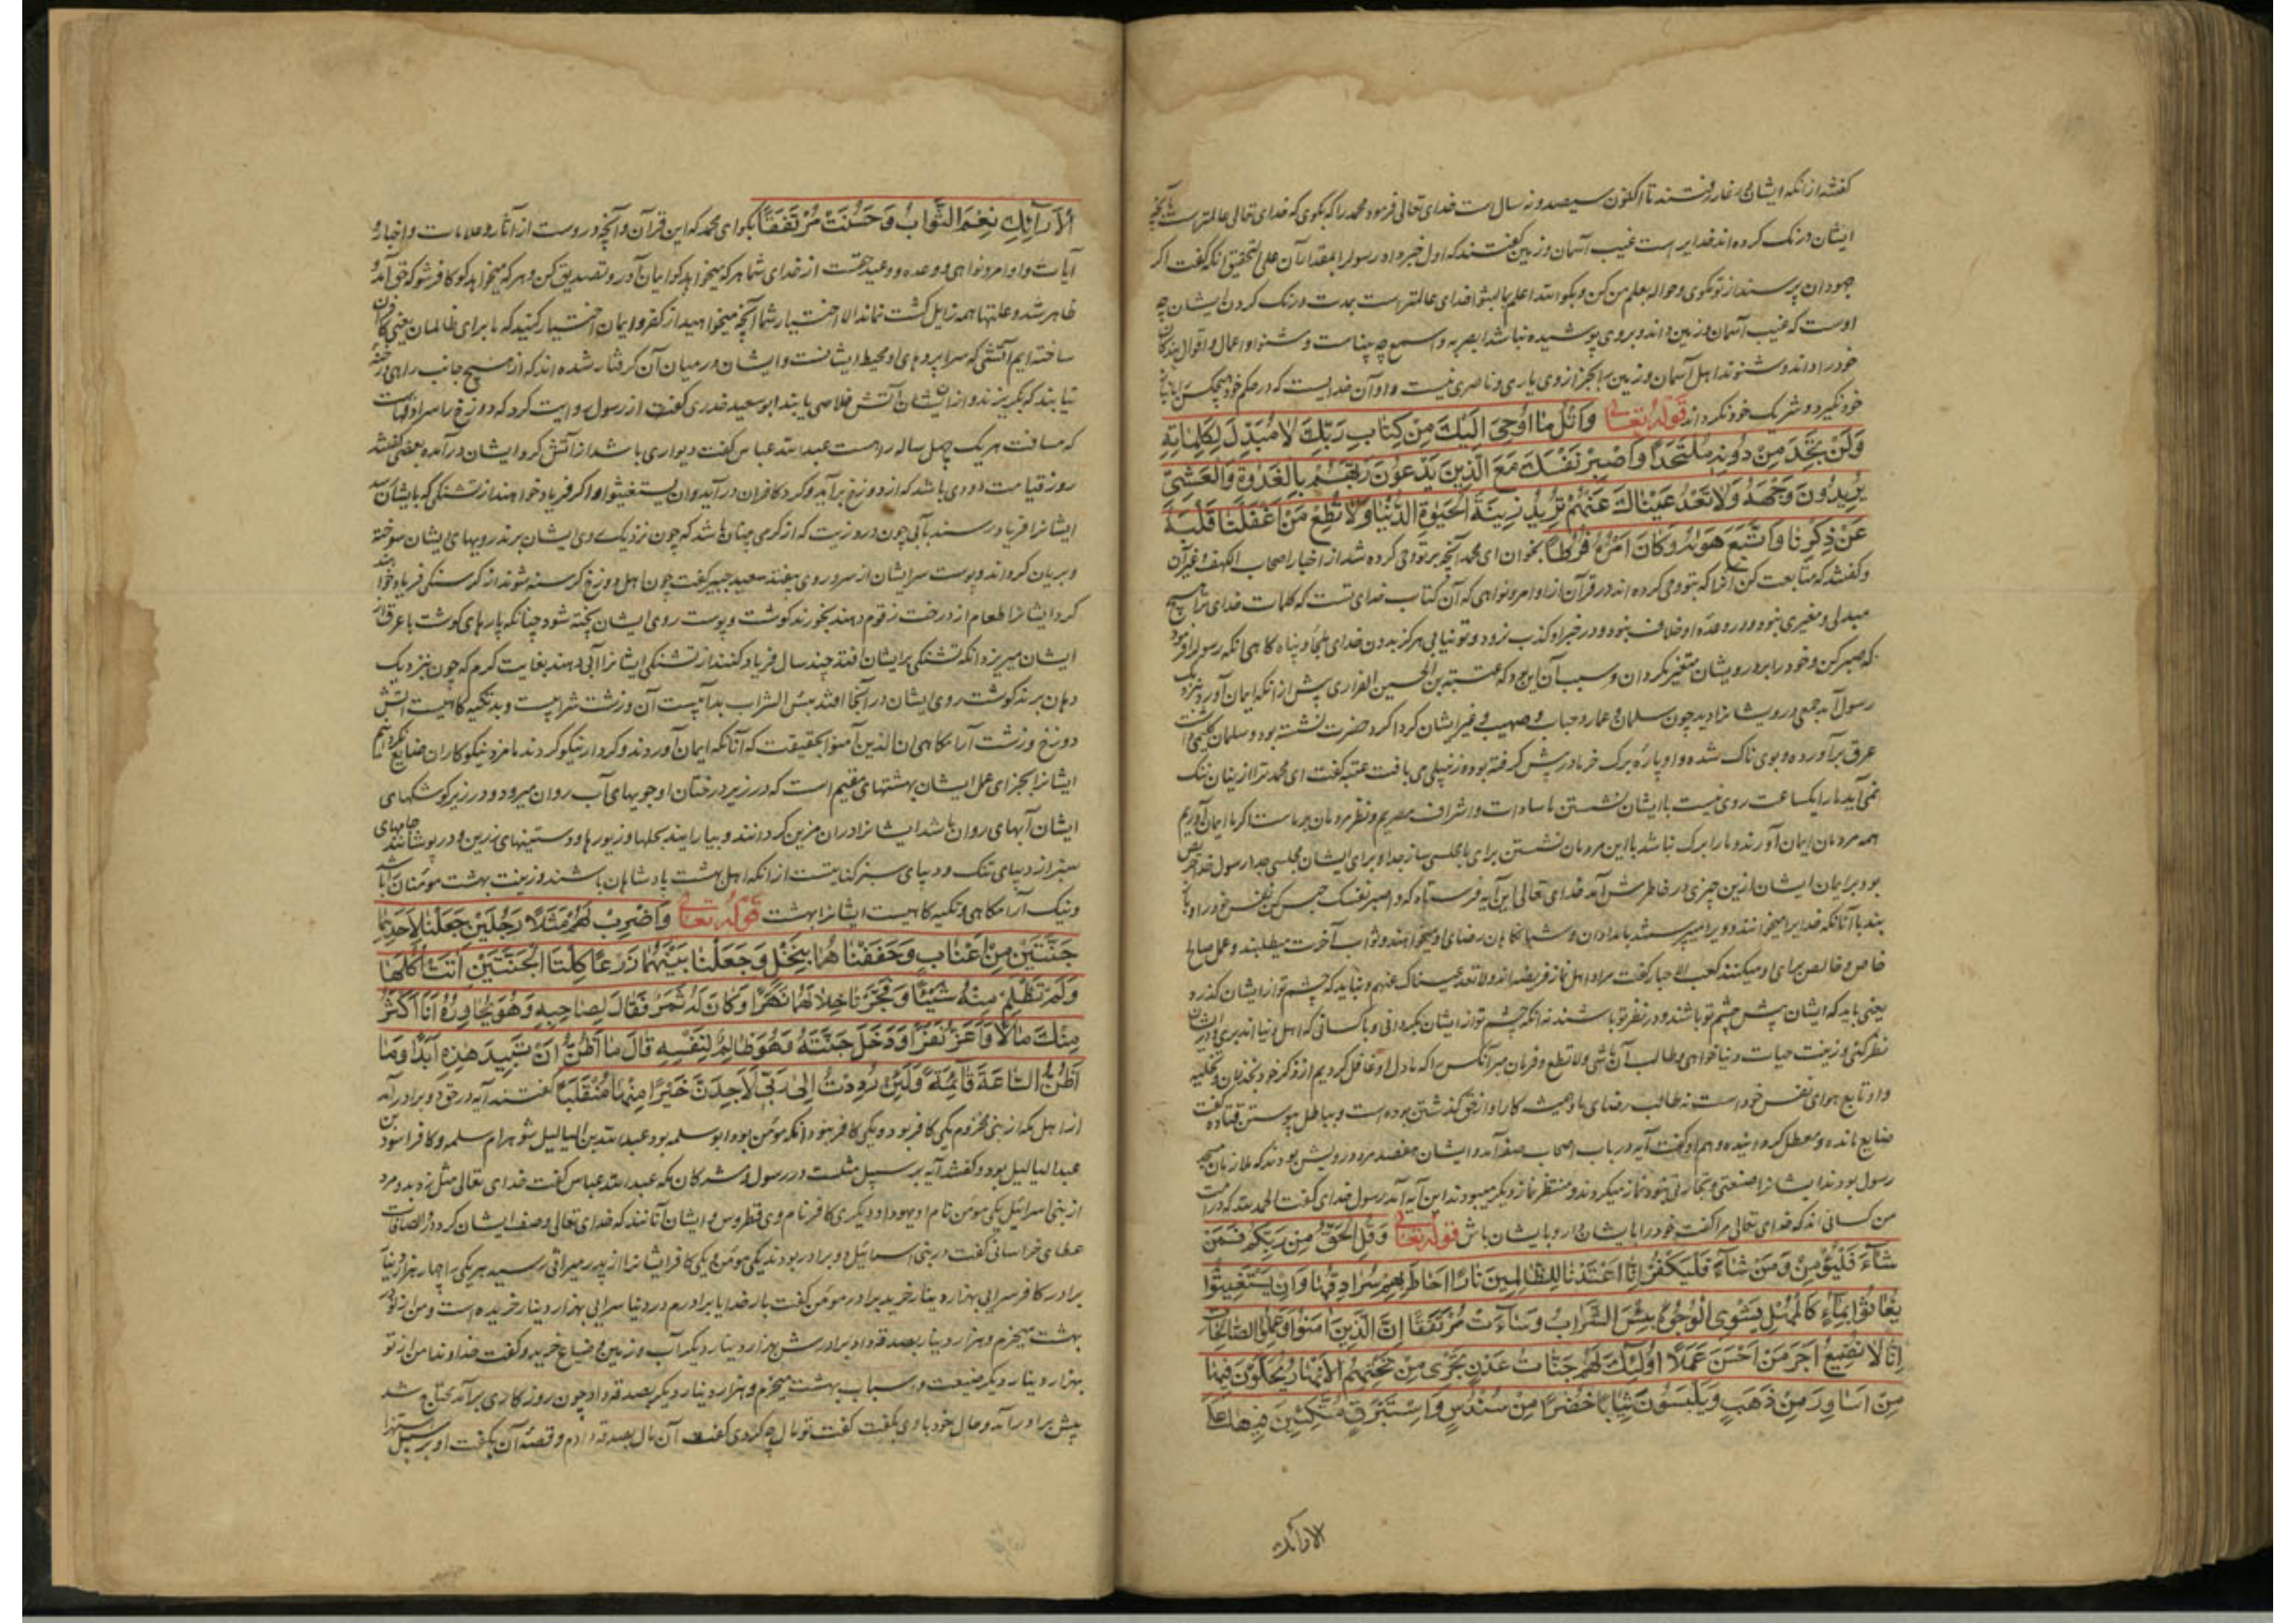 گفتند از آنکه ایشان در غار رفتند تا اکنون سیصد و نه سال است خدای تعالی فرمود محمد را که بگوی که خدای تعالی عالمتر است
ایشان درنک کرده اند خدایراست غیب آسمان و زمین گفتند که اول خبر داد رسول را بمقدار آن علی التحقیق آنکه گفت اگر
جهودان پرسند از تو بگوی و حواله بعلم من کن و بگو الله اعلم بما لبثوا خدای عالمتر است بمدت درنک کردن ایشان چه
اوست که غیب آسمان و زمین داند و بر وی پوشیده نباشد ابصر به و اسمع چه بیناست و شنوا و اعمال و اقوال بندکان
خود را داند و شنوند اهل آسمان و زمین را بجز از وی یاری و ناصری نیست و او آن خدایست که در حکم خود هیچکس را
خود نگیرد و شریک خود نگرداند قوله تعالی وَاتْلُ مَا اُوحِیَ اِلَیْكَ مِنْ کِتَابِ رَبِّكَ لَا مُبَدِّلَ لِکَلِمَاتِهِ
وَلَنْ تَجِدَ مِنْ دُونِهِ مُلْتَحَدًا وَاصْبِرْ نَفْسَكَ مَعَ الَّذِینَ یَدْعُونَ رَبَّهُمْ بِالْغَدٰوةِ وَالْعَشِیِّ
یُرِیدُونَ وَجْهَهُ وَلَا تَعْدُ عَیْنَاكَ عَنْهُمْ تُرِیدُ زِینَةَ الْحَیٰوةِ الدُّنْیَا وَلَا تُطِعْ مَنْ اَغْفَلْنَا قَلْبَهُ
عَنْ ذِکْرِنَا وَاتَّبَعَ هَوٰیهُ وَکَانَ اَمْرُهُ فُرُطًا بخوان ای محمد آنچه بر تو وحی کرده شد از اخبار اصحاب الکهف و غیر آن
و گفتند که متابعت کن آنرا که بتو وحی کرده اند در قرآن از اوامر و نواهی که آن کتاب خدای تست که کلمات خدای ترا هیچ
مبدلی و مغیری نبود و در وعده او خلاف نبود و در خبر او کذب نرود و تو نیابی هرگز بدون خدای ملجأ و پناه کاهی آنکه رسول را فرمود
که صبر کن و خود را بر درویشان متغیر مکردان و سبب آن این بود که عتبة بن الحصین الفزاری پیش از آنکه ایمان آورد بنزدیک
رسول آمد جمعی درویشانرا دید چون سلمان و عمار و خباب و صهیب و غیر ایشان کرداکرد حضرت نشسته بود و سلمان کلیمی داشت
عرق برآورده و بوی ناک شده و او پاره برک خرما در پیش گرفته بود و زنبیلی می بافت عتبه گفت ای محمد ترا از اینان ننک
نمی آید ما را یکساعت روی نیست با ایشان نشستن ما سادات و اشراف مصریم و نظر مردمان بر ماست اگر ما ایمان آوریم
همه مردمان ایمان آورند و ما را برک نباشد با این مردمان نشستن برای ما مجلسی ساز جدا و برای ایشان مجلسی جدا رسول خدا حریص
بود بر ایمان ایشان ازین چیزی در خاطرش آمد خدای تعالی این آیه فرستاد که واصبر نفسک حبس کن نفس خود را و
بند با آنانکه خدایرا میخوانند و ویرا میپرستند بامدادان و شبانکاهان رضای او میخواهند و ثواب آخرت میطلبند و عمل صالح
خاص و خالص برای او میکنند کعب الاحبار گفت مراد اهل نماز فریضه اند ولا تعد عیناک عنهم و نباید که چشم تو از ایشان گذرد
یعنی باید که ایشان پیش چشم تو باشند و در نظر تو باشند نه آنکه چشم تو از ایشان بگردانی و با کسانی که اهل دنیا اند بری و در ایشان
نظر کنی و زینت حیات دنیا خواهی و طالب آن باشی ولا تطع و فرمان مبر آنکس را که ما دل او غافل کردیم از ذکر خود بخذلان و تخلیه
و او تابع هوای نفس خود است نه طالب رضای ما و همیشه کار او از حق گذشتن بوده است و بباطل پیوستن قتاده گفت
ضایع مانده و معطل گردانیده و هم او گفت آیه در باب اصحاب صفه آمد و ایشان هفتصد مرد درویش بودند که ملازمان
رسول بودند ایشانرا صنعتی و تجارتی نبود نماز میکردند و منتظر نماز دیگر میبودند این آیه آمد رسول خدای گفت الحمد لله که در امت
من کسانی اند که خدای تعالی مرا گفت خود را با ایشان دار و با ایشان باش قوله تعالی وَقُلِ الْحَقُّ مِنْ رَبِّکُمْ فَمَنْ
شَاءَ فَلْیُؤْمِنْ وَمَنْ شَاءَ فَلْیَکْفُرْ اِنَّا اَعْتَدْنَا لِلظَّالِمِینَ نَارًا اَحَاطَ بِهِمْ سُرَادِقُهَا وَاِنْ یَسْتَغِیثُوا
یُغَاثُوا بِمَاءٍ کَالْمُهْلِ یَشْوِی الْوُجُوهَ بِئْسَ الشَّرَابُ وَسَاءَتْ مُرْتَفَقًا اِنَّ الَّذِینَ اٰمَنُوا وَعَمِلُوا الصَّالِحَاتِ
اِنَّا لَا نُضِیعُ اَجْرَ مَنْ اَحْسَنَ عَمَلًا اُولٰئِكَ لَهُمْ جَنَّاتُ عَدْنٍ تَجْرِی مِنْ تَحْتِهِمُ الْاَنْهَارُ یُحَلَّوْنَ فِیهَا
مِنْ اَسَاوِرَ مِنْ ذَهَبٍ وَیَلْبَسُونَ ثِیَابًا خُضْرًا مِنْ سُنْدُسٍ وَاِسْتَبْرَقٍ مُتَّکِئِینَ فِیهَا عَلَی
الارائک
الْاَرَائِكِ نِعْمَ الثَّوَابُ وَحَسُنَتْ مُرْتَفَقًا بگو ای محمد که این قرآن و آنچه در وست از آثار و علامات و اخبار و
آیات و اوامر و نواهی و وعده و وعید حقست از خدای شما هر که میخواهد گو ایمان آور و تصدیق کن و هر که میخواهد گو کافر شو که حق آمد و
ظاهر شد و علتها همه زایل گشت نماند الا اختیار شما آنچه میخواهید از کفر و ایمان اختیار کنید که ما برای ظالمان یعنی کافران
ساخته ایم آتشی که سراپردهای او محیط ایشانست و ایشان در میان آن گرفتار شده اند که از هیچ جانب راهی و رخنه
نیابند که بگریزند و از آن آتش خلاصی یابند ابو سعید خدری گفت از رسول روایت کرد که دوزخ را سرادقهاست
که مسافت هر یک چهل ساله راهست عبدالله عباس گفت دیواری باشد از آتش گرد ایشان درآمده بعضی گفتند
روز قیامت دودی باشد که از دوزخ برآید و گرد کافران درآید وان یستغیثوا و اگر فریاد خواهند از تشنگی که بایشان رسد
ایشانرا فریاد رسند بآبی چون درد زیت که از گرمی چنان باشد که چون نزدیک روی ایشان برند رویهای ایشان سوخته
و بریان گرداند و پوست سر ایشان از سر و روی بیفتد سعید جبیر گفت چون اهل دوزخ گرسنه شوند از گرسنگی فریاد خواهند
کرد ایشانرا طعام از درخت زقوم دهند بخورند گوشت و پوست روی ایشان پخته شود چنانکه پارهای گوشت با عرق از
ایشان میریزد آنکه تشنگی بر ایشان افتد چند سال فریاد کنند از تشنگی ایشانرا آبی دهند بغایت گرم که چون بنزدیک
دهان برند گوشت روی ایشان در آنجا افتد بئس الشراب بد آبیست آن و زشت شرابیست و بد تکیه گاهیست آتش
دوزخ و زشت آرامگاهی ان الذین آمنوا بحقیقت که آنانکه ایمان آوردند و کردار نیکو کردند ما مزد نیکوکاران ضایع نکردانیم
ایشانرا بجزای عمل ایشان بهشتهای مقیم است که در زیر درختان او جویهای آب روان میرود و در زیر کوشکهای
ایشان آبهای روان باشد ایشانرا در آن مزین گردانند و بیارایند بحلها و زیورها و دستینهای زرین و درپوشانند جامهای
سبز از دیبای تنک و دیبای سبز کنایتست از آنکه اهل بهشت پادشاهان باشند و زینت بهشت مومنان را باشد
و نیک آرامگاهی و تکیه گاهیست ایشانرا بهشت قوله تعالی وَاضْرِبْ لَهُمْ مَثَلًا رَجُلَیْنِ جَعَلْنَا لِاَحَدِهِمَا
جَنَّتَیْنِ مِنْ اَعْنَابٍ وَحَفَفْنَاهُمَا بِنَخْلٍ وَجَعَلْنَا بَیْنَهُمَا زَرْعًا کِلْتَا الْجَنَّتَیْنِ اٰتَتْ اُکُلَهَا
وَلَمْ تَظْلِمْ مِنْهُ شَیْئًا وَفَجَّرْنَا خِلَالَهُمَا نَهَرًا وَکَانَ لَهُ ثَمَرٌ فَقَالَ لِصَاحِبِهِ وَهُوَ یُحَاوِرُهُ اَنَا اَکْثَرُ
مِنْكَ مَالًا وَاَعَزُّ نَفَرًا وَدَخَلَ جَنَّتَهُ وَهُوَ ظَالِمٌ لِنَفْسِهِ قَالَ مَا اَظُنُّ اَنْ تَبِیدَ هٰذِهِ اَبَدًا وَمَا
اَظُنُّ السَّاعَةَ قَائِمَةً وَلَئِنْ رُدِدْتُ اِلٰی رَبِّی لَاَجِدَنَّ خَیْرًا مِنْهَا مُنْقَلَبًا گفتند آیه در حق دو برادر آمد
از اهل مکه از بنی مخزوم یکی کافر بود و یکی کافر نبود آنکه مؤمن بود ابو سلمه بود عبدالله بن عبد الیالیل شوهر ام سلمه و کافر اسود بن
عبد الیالیل بود و گفتند آیه بر سبیل مثلست در رسول و مشرکان مکه عبدالله عباس گفت خدای تعالی مثل زد بدو مرد
از بنی اسرائیل یکی مؤمن نام او یهودا و دیگری کافر نام وی قطروس و ایشان آنانند که خدای تعالی وصف ایشان کرد در الصافات
عطای خراسانی گفت در بنی اسرائیل دو برادر بودند یکی مومن و یکی کافر ایشانرا از پدر میراثی رسید هر یکی را چهار هزار دینار
برادر کافر سرایی بهزار دینار خرید برادر مومن گفت بار خدایا برادرم در دنیا سرایی بهزار دینار خریده است و من از تو در
بهشت میخرم و هزار دینار بصدقه داد برادرش هزار دینار دیگر آب و زمین و ضیاع خرید و گفت خداوندا من از تو
بهزار دینار دیگر ضیعت و اسباب بهشت میخرم و هزار دینار دیگر بصدقه داد چون روزگاری برآمد محتاج شد
پیش برادر آمد و حال خود با وی بگفت گفت تو مال چه کردی گفت آن مال بصدقه دادم و قصه آن بگفت او بر سبیل استهزا